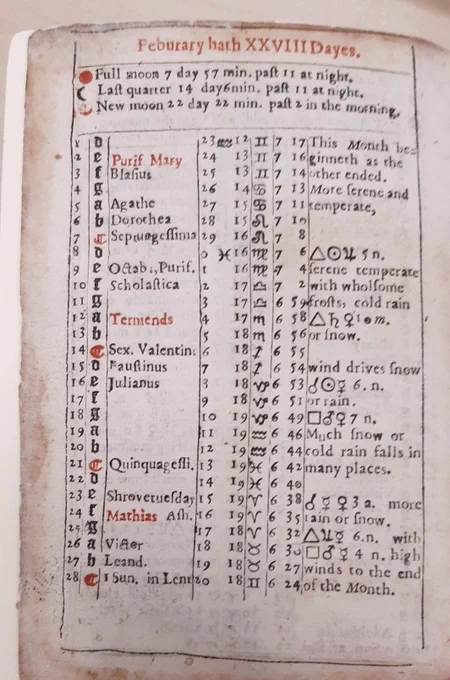 Feburary hath XXVIII Dayes.
Full moon 7 day 57 min. paſt 11 at night.
☾ Laſt quarter 14 day6min. paſt 11 at night.
New moon 22 day 22 min. paſt 2 in the morning.
1 d 23 ♒ 12 ♊ 7 17 This Month be-
2 e Purif Mary 24 13 ♊ 7 16 ginneth as the
3 f Blaſius 25 13 ♊ 7 14 other ended.
4 g 26 14 ♋ 7 13 More ſerene and
5 a Agathe 27 15 ♋ 7 11 temperate,
6 b Dorothea 28 15 ♌ 7 10
7 C Septuageſſima 29 16 ♌ 7 8
8 d 0 ♓ 16 ♍ 7 6 △☉♃ 5 n.
9 e Octab:,Purif. 1 16 ♍ 7 4 ſerene temperate
10 f Scholaſtica 2 17 ♎ 7 2 with wholſome
11 g 3 17 ♎ 6 59 froſts, cold rain
12 a Termends 4 17 ♏ 6 58 △♄♀ 10 m.
13 b 5 18 ♏ 6 56 or ſnow.
14 C Sex. Valentin: 6 18 ♐ 6 55
15 d Fauſtinus 7 18 ♐ 6 54 wind drives ſnow
16 e Julianus 8 18 ♑ 6 53 ☌☉☿ 6. n.
17 f 9 18 ♑ 6 51 or rain.
18 g 10 19 ♑ 6 49 □♂♀ 7 n.
19 a 11 19 ♒ 6 46 Much ſnow or
20 b 12 19 ♒ 6 44 cold rain falls in
21 C Quinquageſſi. 13 19 ♓ 6 42 many places.
22 d 14 19 ♓ 6 40
23 e Shrovetueſday 15 19 ♈ 6 38 ☌☿♀ 3 a. more
24 f Mathias Aſh. 16 19 ♈ 6 35 rain or ſnow.
25 g 17 18 ♈ 6 32 △♃☿ 6.n. with
26 a Victor 18 18 ♉ 6 30 □♂☿ 4 n. high
27 b Leand. 19 18 ♉ 6 27 winds to the end
28 C 1 Sun. in Lent 20 18 ♊ 6 24 of the Month.